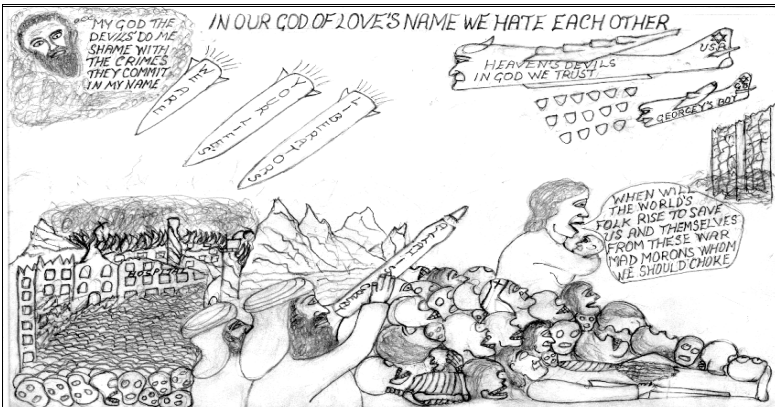 IN OUR GOD OF LOVE'S NAME WE HATE EACH OTHER
MY GOD THE
DEVILS DO ME
SHAME WITH
THE CRIMES
THEY COMMIT
IN MY NAME
WE ARE
YOUR LIFE'S
LIBERATORS
USA
HEAVEN'S DEVILS
IN GOD WE TRUST
GB
GEORGEY'S
WHEN WILL
THE WORLD'S
FOLK RISE TO SAVE
US AND THEMSELVES
FROM THESE WAR
MAD MORONS WHOM
WE SHOULD CHOKE
HOSPITAL